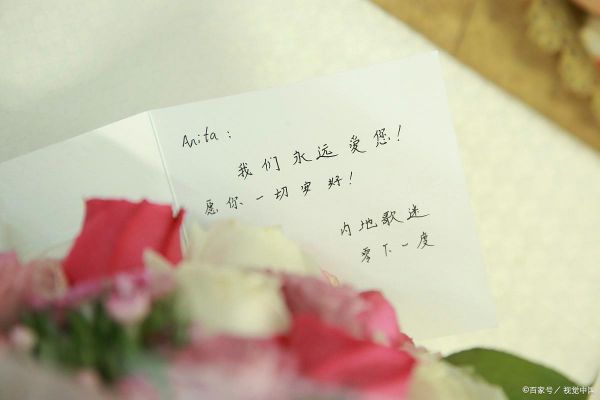 Anita:
我们永远爱您!
愿你一切安好!
内地歌迷
零下一度
©百家号/视觉中国